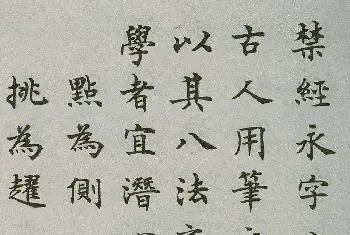 禁經永字
古人用筆
以其八法
學者宜潛
點為側
挑為趯